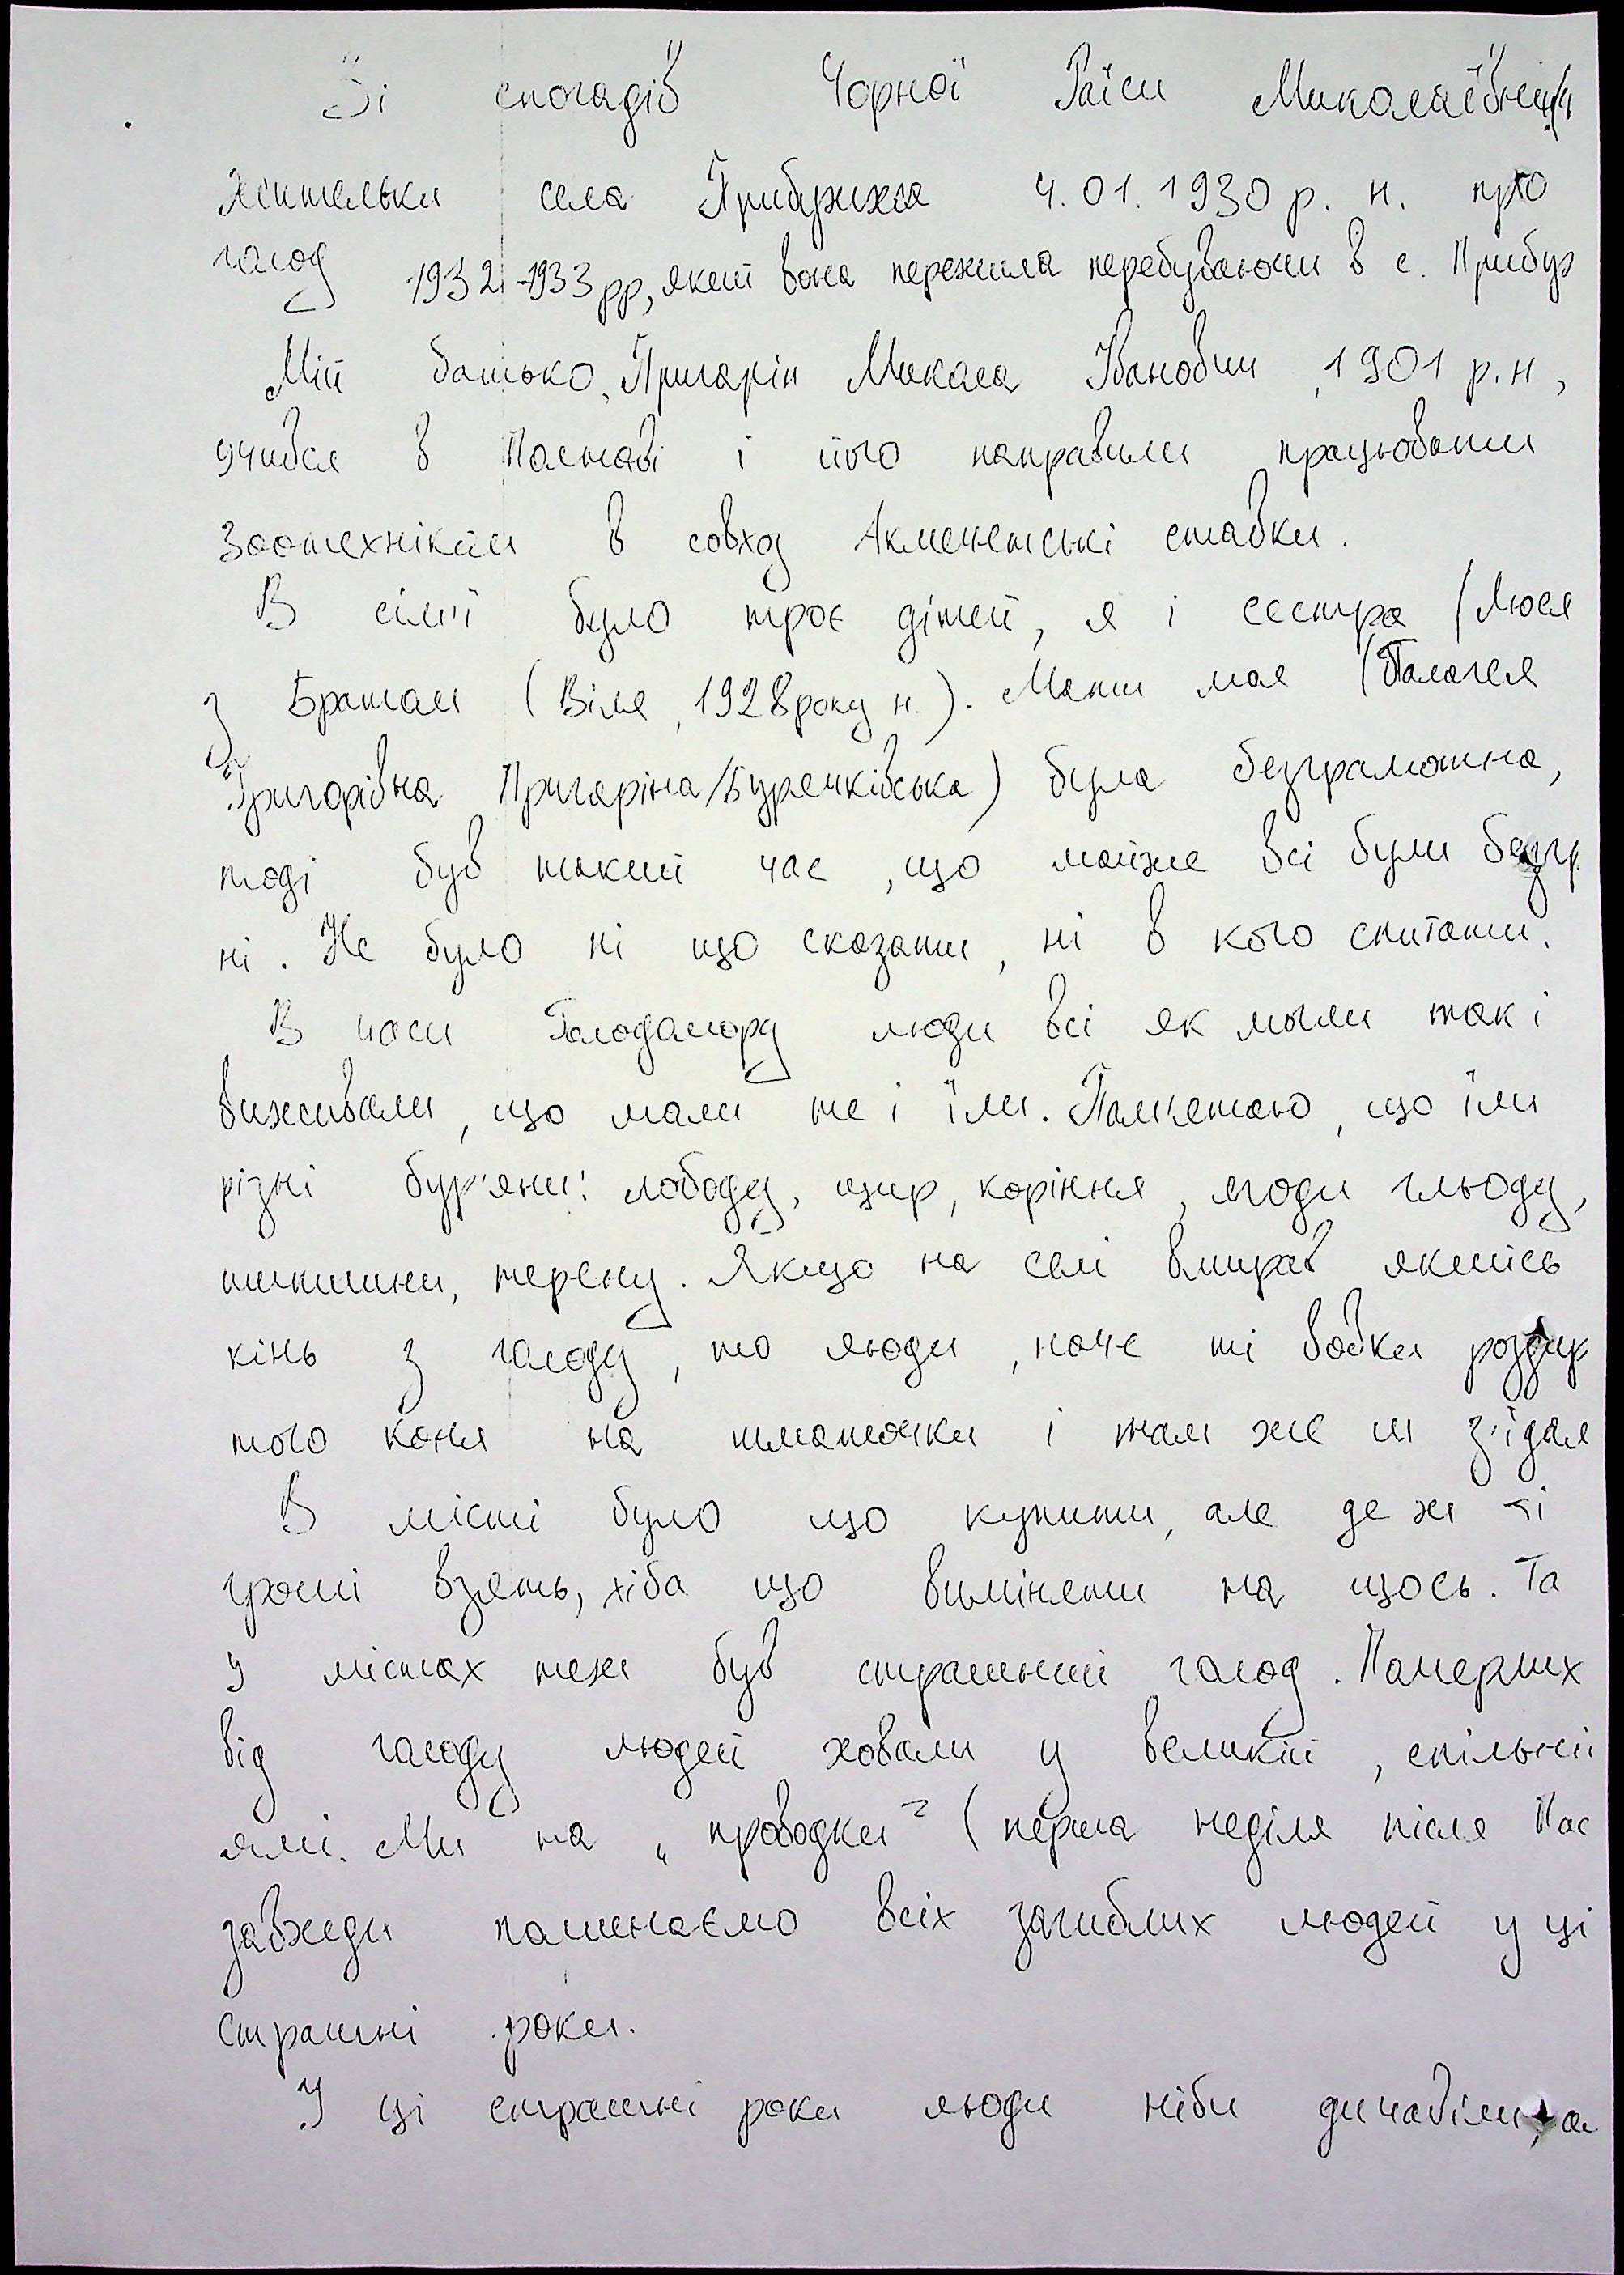 Зі спогадів Чорної Раїси Миколаївни
жительки села Прибужжя 4.01.1930 р. н. про
голод 1932-1933 рр, який вона пережила перебуваючи в с. Прибуж
Мій батько, Пригарін Микола Іванович, 1901 р.н,
учився в Полтаві і його направили працювати
зоотехніком в совхоз Акмечетські ставки.
В сім'ї було троє дітей, я і сестра (Люся
з Братом (Віля, 1928 року н.). Мати моя (Палагея
Григорівна Пригаріна/Буречківська) була безграмотна,
тоді був такий час, що майже всі були безгр
ні. Не було ні що сказати, ні в кого спитати.
В часи Голодомору люди всі як могли так і
виживали, що мали те і їли. Пам'ятаю, що їли
різні бур'яни: лободу, щир, коріння, ягоди гльоду,
шипшини, терену. Якщо на селі вмирав якийсь
кінь з голоду, то люди, наче ті вовки роздир
того коня на шматочки і там же й з'їдал
В місті було що купити, але де ж ті
гроші взять, хіба що виміняти на щось. Та
у містах теж був страшний голод. Померших
від голоду людей ховали у великій, спільній
ямі. Ми на „проводки" (перша неділя після Пас
завжди поминаємо всіх загиблих людей у ці
страшні роки.
У ці страшні роки люди ніби дичавіли, а